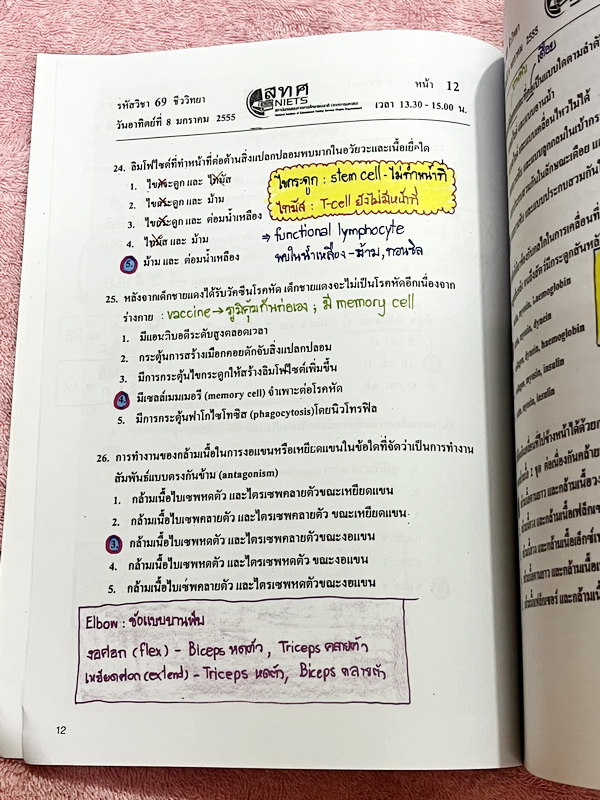 รหัสวิชา 69 ชีววิทยา
วันอาทิตย์ที่ 8 มกราคม 2555
สทศ
NIETS
หน้า 12
เวลา 13.30 - 15.00 น.
24. ลิมโฟไซต์ที่ทำหน้าที่ต่อต้านสิ่งแปลกปลอมพบมากในอวัยวะและเนื้อเยื่อใด
1. ไขกระดูก และ ไทมัส
2. ไขกระดูก และ ม้าม
3. ไขกระดูก และ ต่อมน้ำเหลือง
4. ไทมัส และ ม้าม
5. ม้าม และ ต่อมน้ำเหลือง
ไขกระดูก : stem cell - ไม่ทำหน้าที่
ไทมัส : T-cell ยังไม่มีหน้าที่
⇒ functional lymphocyte
พบในน้ำเหลือง - ม้าม, ทอนซิล
25. หลังจากเด็กชายแดงได้รับวัคซีนโรคหัด เด็กชายแดงจะไม่เป็นโรคหัดอีกเนื่องจาก
ร่างกาย : vaccine → ภูมิคุ้มกันก่อเอง ; มี memory cell
1. มีแอนติบอดีระดับสูงตลอดเวลา
2. กระตุ้นการสร้างเมือกคอยดักจับสิ่งแปลกปลอม
3. มีการกระตุ้นไขกระดูกให้สร้างลิมโฟไซต์เพิ่มขึ้น
4. มีเซลล์เมมเมอรี (memory cell) จำเพาะต่อโรคหัด
5. มีการกระตุ้นฟาโกไซโทซิส (phagocytosis)โดยนิวโทรฟิล
26. การทำงานของกล้ามเนื้อในการงอแขนหรือเหยียดแขนในข้อใดที่จัดว่าเป็นการทำงาน
สัมพันธ์แบบตรงกันข้าม (antagonism)
1. กล้ามเนื้อไบเซพหดตัว และไตรเซพคลายตัวขณะเหยียดแขน
2. กล้ามเนื้อไบเซพคลายตัว และไตรเซพคลายตัว ขณะเหยียดแขน
3. กล้ามเนื้อไบเซพหดตัว และไตรเซพคลายตัวขณะงอแขน
4. กล้ามเนื้อไบเซพหดตัว และไตรเซพหดตัว ขณะงอแขน
5. กล้ามเนื้อไบเซพคลายตัว และไตรเซพหดตัวขณะงอแขน
Elbow : ข้อแบบบานพับ
งอศอก (flex) - Biceps หดตัว, Triceps คลายตัว
เหยียดศอก (extend) - Triceps หดตัว, Biceps คลายตัว
12
haemoglobin
dynein
haemoglobin
myosin, insulin
myosin, insulin